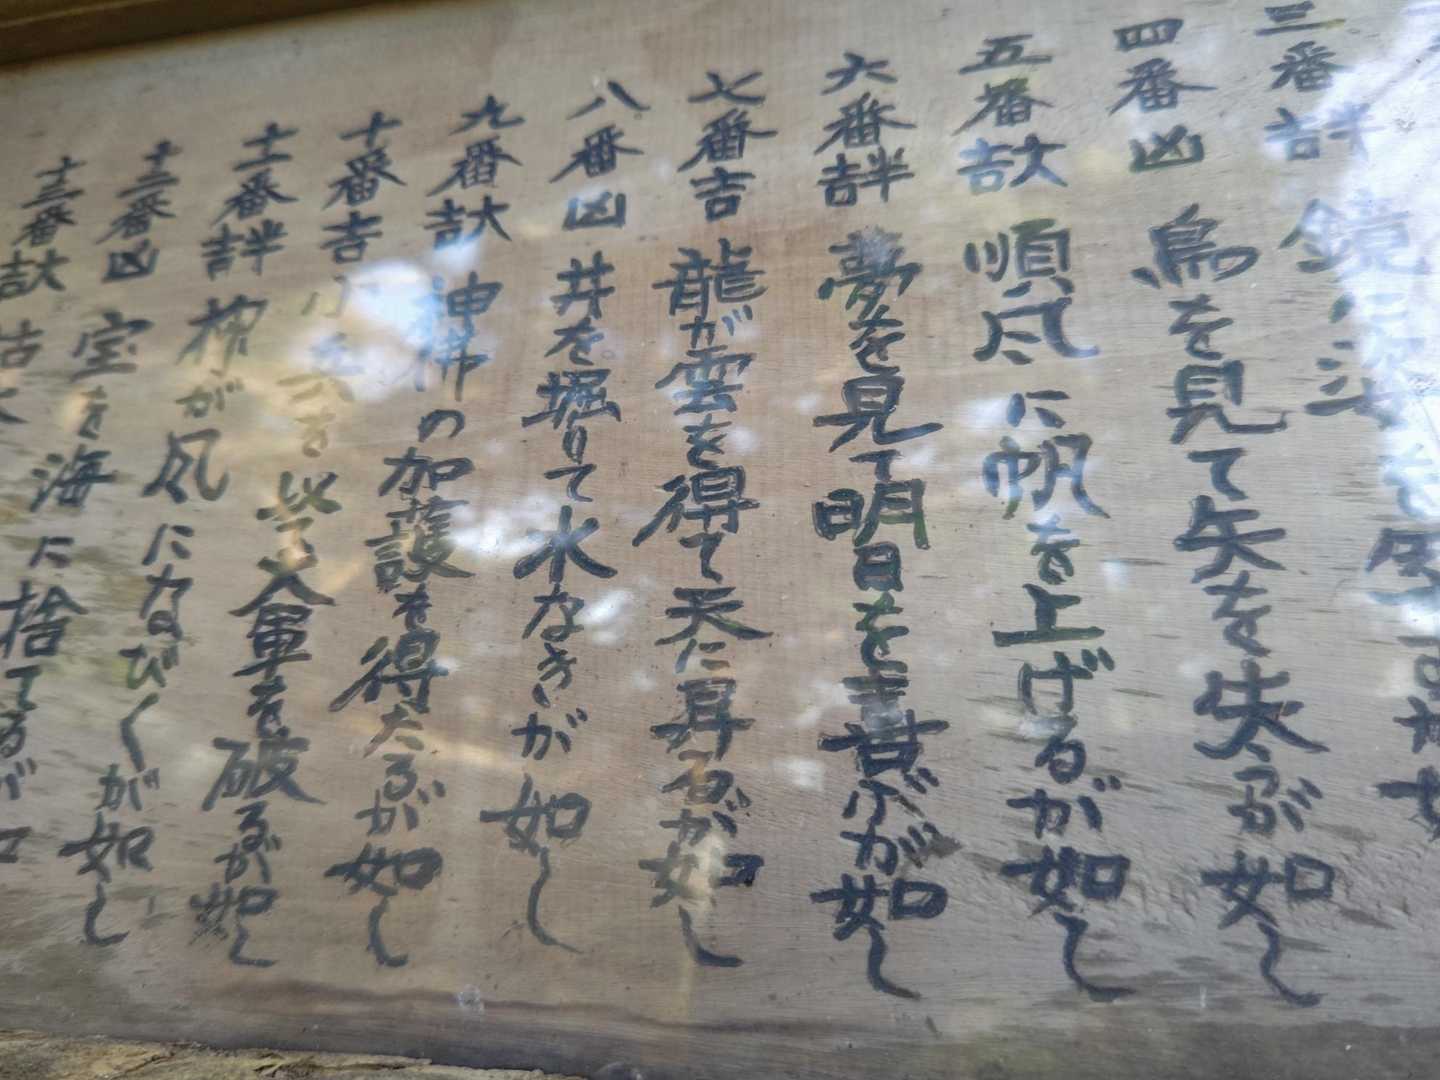 三番半吉 鏡に
四番凶 鳥を見て矢を失ふが如し
五番大吉 順風に帆を上げるが如し
六番半吉 夢を見て明日を喜ぶが如し
七番吉 龍が雲を得て天に昇るが如し
八番凶 井を堀りて水なきが如し
九番大吉 神佛の加護を得たるが如し
十番吉 小兵を以て大軍を破るが如し
十一番半吉 柳が風になびくが如し
十二番凶 宝を海に捨てるが
十三番大吉 枯木